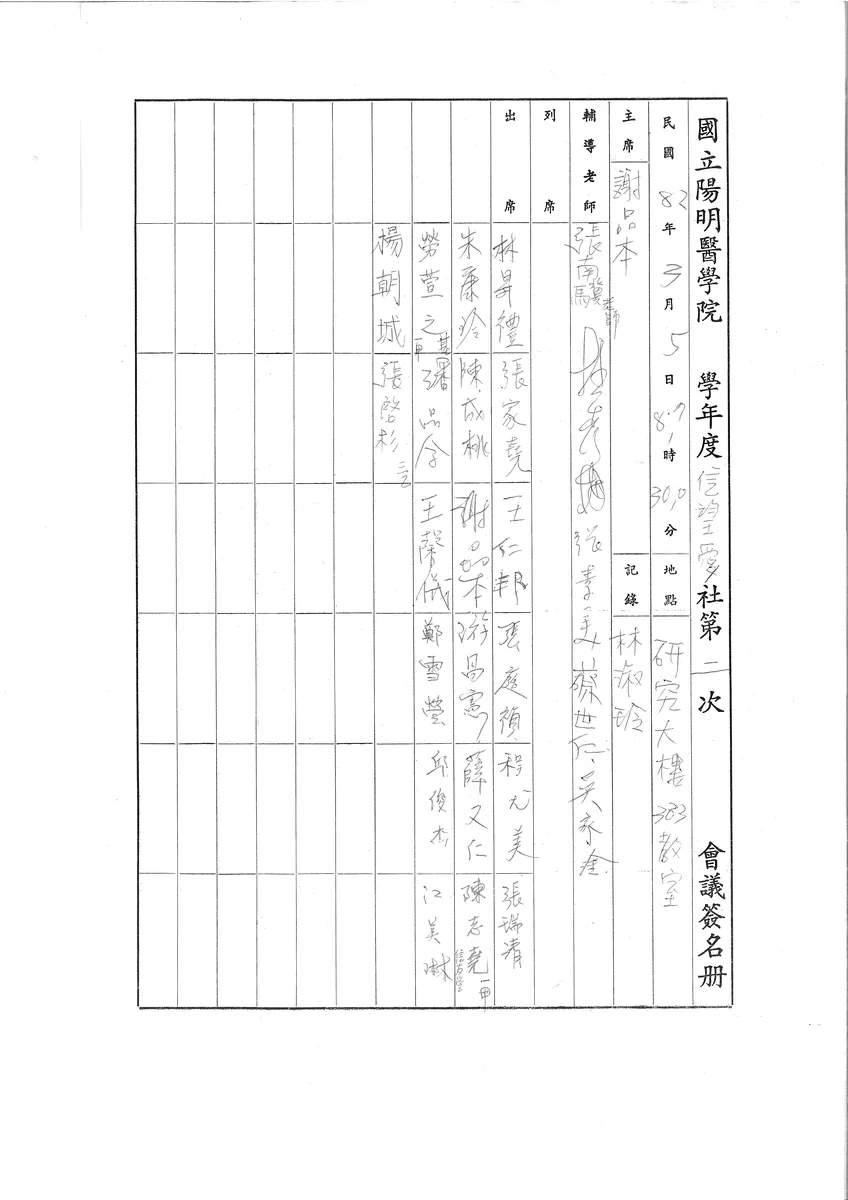 國立陽明醫學院 學年度信望愛社第二次 會議簽名册
民國82年3月5日 時30,0分 地點 研究大樓383教室
主席 謝品本 記錄 林淑玲
輔導老師 張南驥老師 張季美 蔡世仁 吳家奎
列席
出席 林昇禮 張家堯 王仁邦 張庭禎 程尤美 張瑞清
朱康玲 陳成桃 謝品本 游昌憲 薛又仁 陳志堯
勞萱之 品含 王馨儀 鄭雪瑩 邱俊杰 江美琳
楊朝城 張啓杉